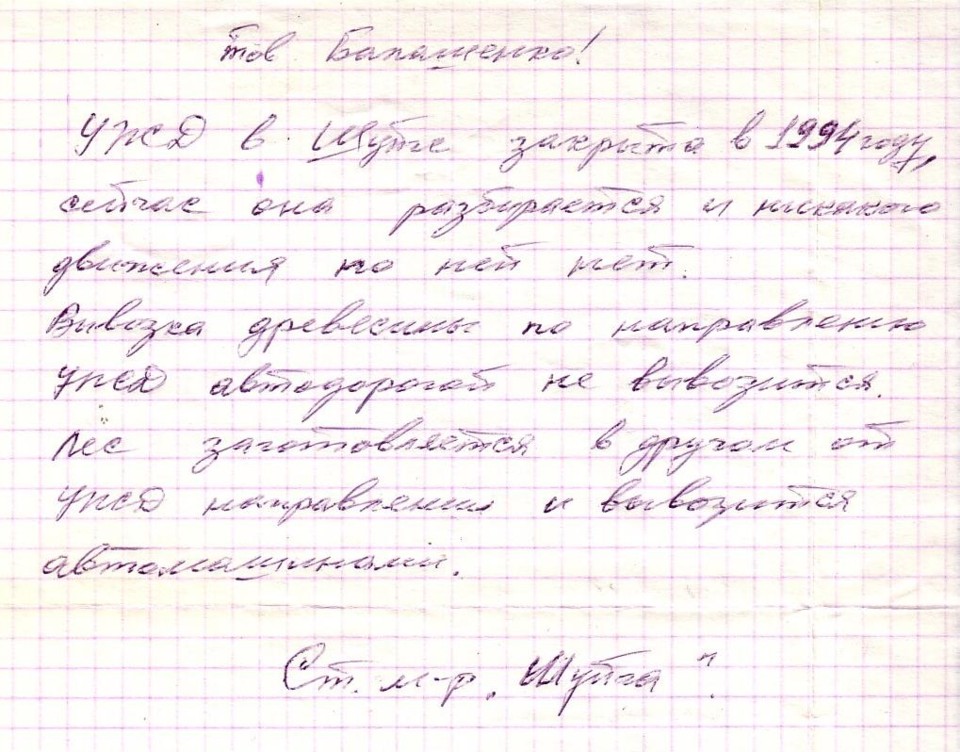 Тов Балашенко!
УЖД в Шуйге закрыта в 1994 году,
сейчас она разбирается и никакого
движения по ней нет.
Вывозка древесины по направлению
УЖД автодорогой не вывозится.
Лес заготовляется в другом от
УЖД направлении и вывозится
автомашинами.
Ст. м-р „Шуйга".